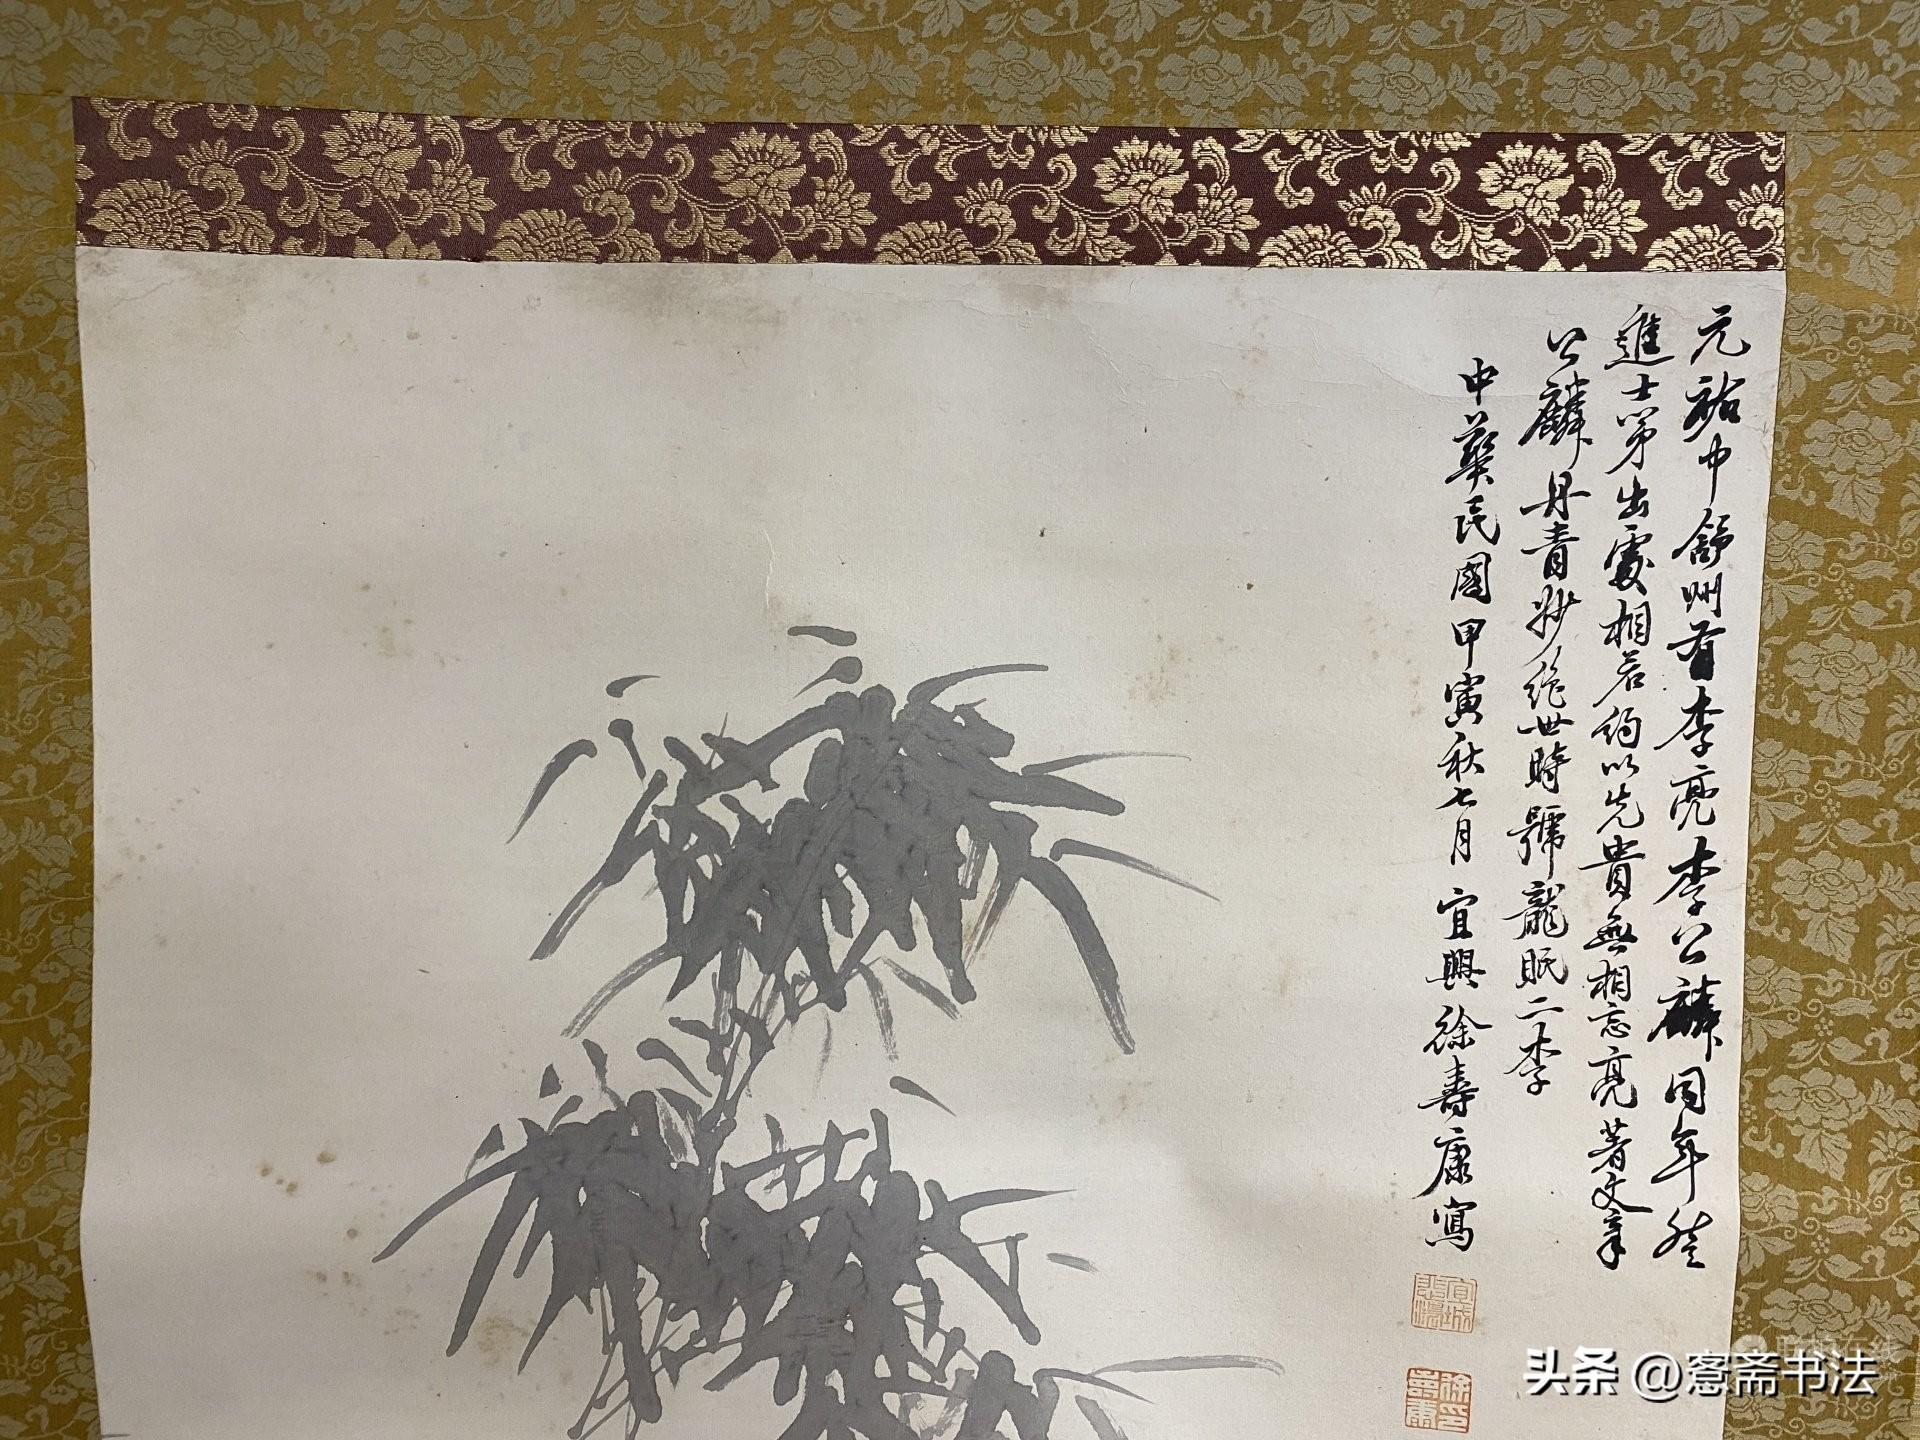 元祐中舒州有李亮李公麟同年登
進士第出處相若約以先貴無相忘亮著文章
公麟丹青妙絶世時號龍眠二李
中華民國甲寅秋七月 宜興徐壽康寫
徐壽康印
头条 @愙斋书法